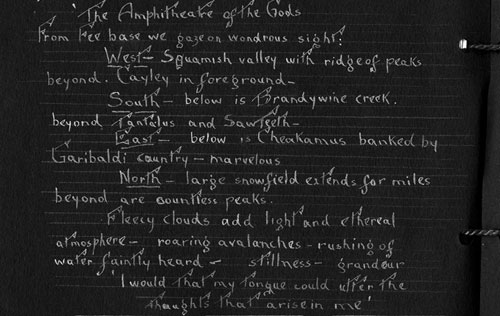 'The Amphitheatre of the Gods
From Fee base we gaze on wondrous sight:
West - Squamish valley with ridge of peaks
beyond. Cayley in foreground -
South - below is Brandywine creek.
beyond Tantalus and Sawteeth -
East - below is Cheakamus banked by
Garibaldi country - marvelous
North - large snowfield extends for miles
beyond are countless peaks.
Fleecy clouds add light and ethereal
atmosphere - roaring avalanches - rushing of
water faintly heard - stillness - grandeur
'I would that my tongue could utter the
thoughts that arise in me'